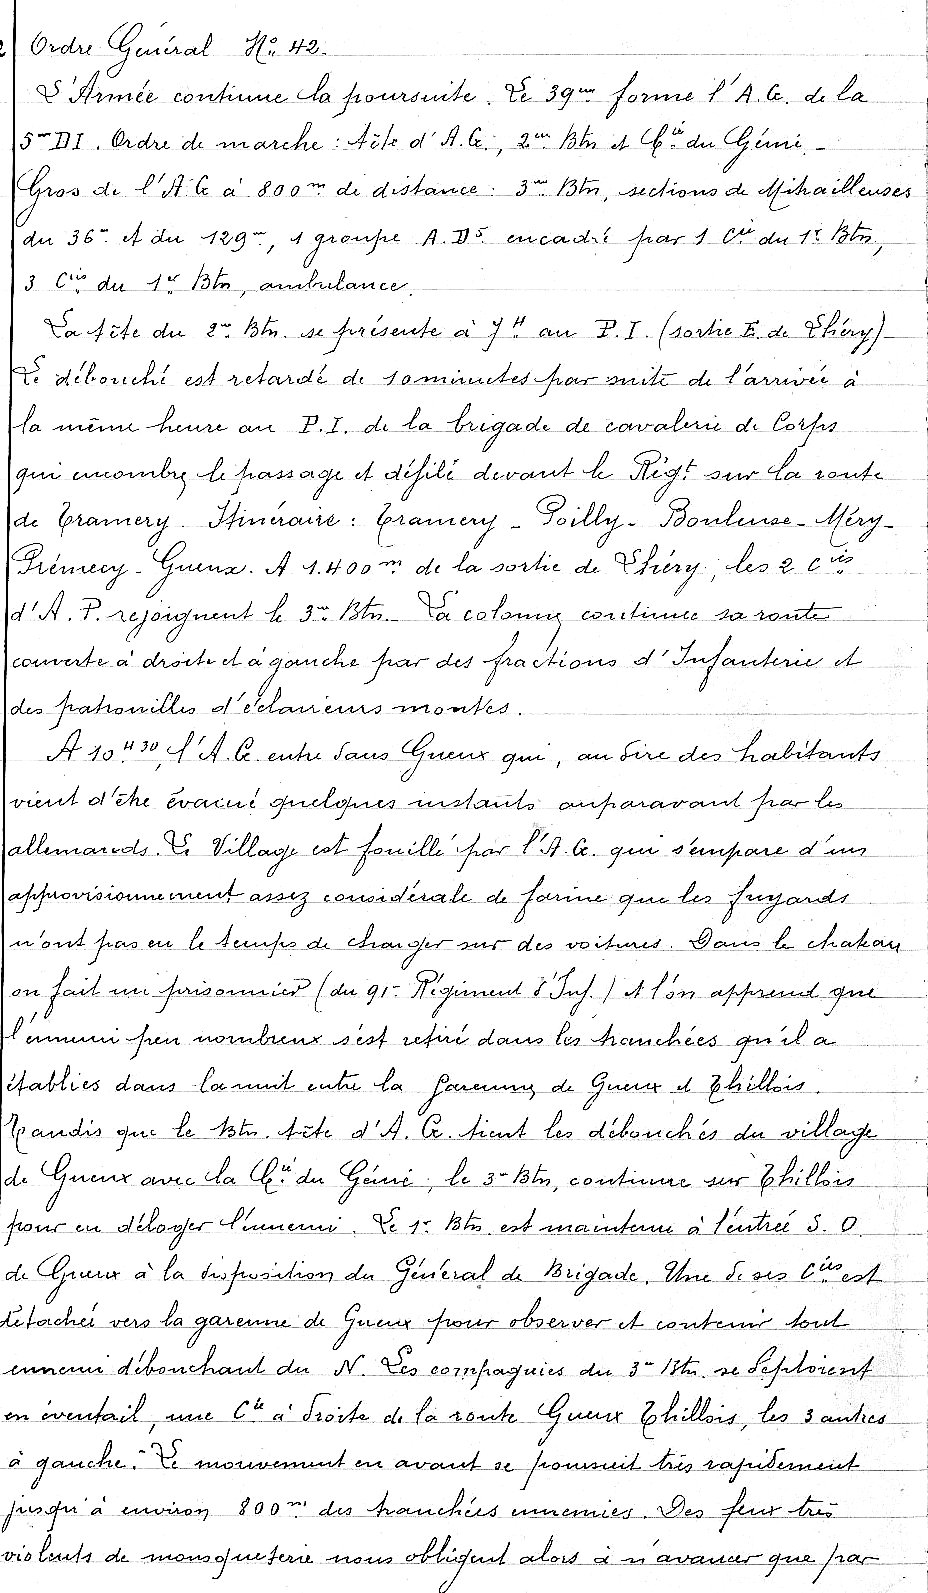 Ordre Général No 42.
L'Armée continue la poursuite. Le 39em forme l'A.G. de la
5me DI. Ordre de marche : tête d'A.G., 2em Btn et Cie du Génie. -
Gros de l'A.G à 800m de distance : 3me Btn, sections de Mitrailleuses
du 36e et du 129e, 1 groupe A.D5 encadré par 1 Cie du 1er Btn,
3 Cies du 1er Btn, ambulance.
La tête du 2me Btn. se présente à 7H au P.I. (sortie E. de Lhéry)
Le débouché est retardé de 10 minutes par suite de l'arrivée à
la même heure au P.I. de la brigade de cavalerie de Corps
qui encombre le passage et défilé devant le Régt sur la route
de Tramery. Itinéraire : Tramery - Poilly - Bouleuse - Méry-
Prémecy - Gueux. A 1.400m de la sortie de Lhéry, les 2 Cies
d'A.P. rejoignent le 3me Btn. - La colonne continue sa route
couverte à droite et à gauche par des fractions d'Infanterie et
des patrouilles d'éclaireurs montés.
A 10H30, l'A.G. entre dans Gueux qui, au dire des habitants
vient d'être évacué quelques instants auparavant par les
allemands. Le Village est fouillé par l'A.G. qui s'empare d'un
approvisionnement assez considérale de farine que les fuyards
n'ont pas eu le temps de charger sur des voitures. Dans le chateau
on fait un prisonnier (du 91e Régiment d'Inf.) et l'on apprend que
l'ennemi peu nombreux s'est retiré dans les tranchées qu'il a
établies dans la nuit entre la garenne de Gueux et Thillois.
Tandis que le Btn. tête d'A.G. tient les débouchés du village
de Gueux avec la Cie du Génie, le 3e Btn, continue sur Thillois
pour en déloger l'ennemi. Le 1er Btn est maintenu à l'entrée S.O.
de Gueux à la disposition du Général de Brigade. Une de ses Cies est
détachée vers la garenne de Gueux pour observer et contenir tout
ennemi débouchant du N. Les compagnies du 3me Btn. se déploient
en éventail, une Cie à droite de la route Gueux Thillois, les 3 autres
à gauche. - Le mouvement en avant se poursuit très rapidement
jusqu'à environ 800m des tranchées ennemies. Des feux très
violents de mousqueterie nous obligent alors à n'avancer que par